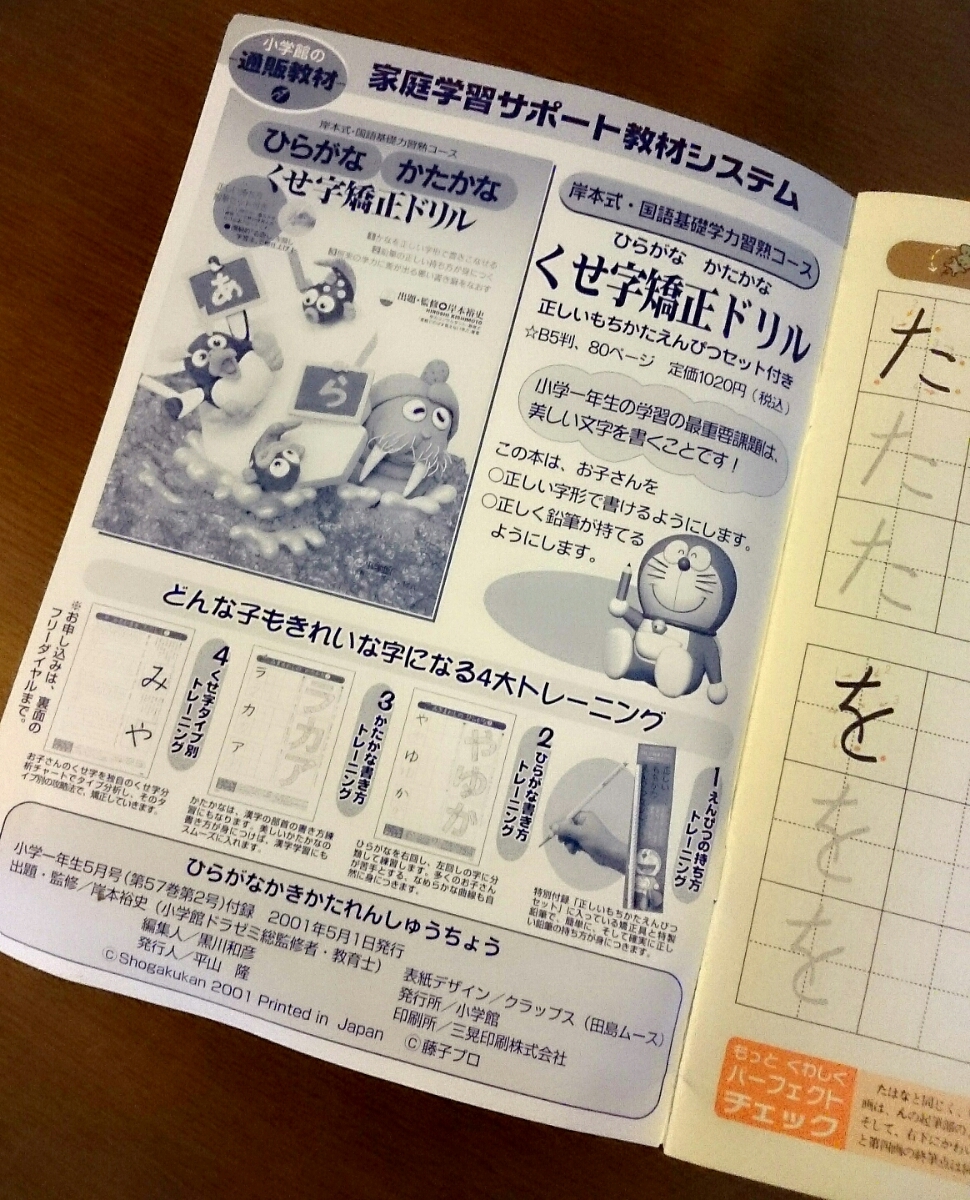 小学館の
通販教材
家庭学習サポート教材システム
岸本式・国語基礎力習熟コース
ひらがな かたかな
くせ字矯正ドリル
かなを正しい字形で書きこなせる
鉛筆の正しい持ち方が身につく
出題・監修 岸本裕史
あ
ら
岸本式・国語基礎学力習熟コース
ひらがな かたかな
くせ字矯正ドリル
正しいもちかたえんぴつセット付き
☆B5判、80ページ 定価1020円(税込)
小学一年生の学習の最重要課題は、
美しい文字を書くことです!
この本は、お子さんを
○正しい字形で書けるようにします。
○正しく鉛筆が持てる
ようにします。
どんな子もきれいな字になる4大トレーニング
1 えんぴつの持ち方
トレーニング
特別付録「正しいもちかたえんぴつ
セット」に入っている矯正具と特製
鉛筆で、簡単に、そして確実に正し
い鉛筆の持ち方が身につきます。
2 ひらがな書き方
トレーニング
やゆか
や
ゆ
か
ひらがなを右回し、左回しの字に分
類して練習します。多くのお子さん
が苦手とする、なめらかな曲線も自
然に身につきます。
3 かたかな書き方
トレーニング
ラカア
ラ
カ
ア
かたかなは、漢字の部首の書き方練
習にもなります。美しいかたかなの
書き方が身につけば、漢字学習にも
スムーズに入れます。
4 くせ字タイプ別
トレーニング
み
や
お子さんのくせ字を独自のくせ字分
析チャートでタイプ分析し、そのタ
イプ別の攻略法で、矯正していきます。
※お申し込みは、裏面の
フリーダイヤルまで。
ひらがなかきかたれんしゅうちょう
小学一年生5月号(第57巻第2号)付録 2001年5月1日発行
出題・監修/岸本裕史(小学館ドラゼミ総監修者・教育士)
編集人/黒川和彦
発行人/平山 隆
©Shogakukan 2001 Printed in Japan
表紙デザイン/クラップス(田島ムース)
発行所/小学館
印刷所/三晃印刷株式会社
©藤子プロ
た
た
た
を
を
を
もっと くわしく
パーフェクト
チェック
たはなと同じく、
画は、んの起筆部の
そして、右下にかわい
と第四画の終筆点は